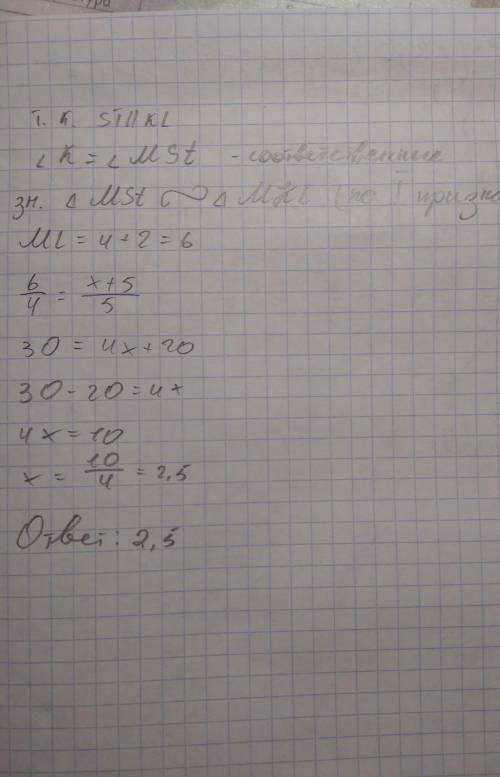 т. к. ST || KL
∠K = ∠MSt - соответственные
зн. △MSt ∾ △MKL (по I призна
ML = 4 + 2 = 6
6/4 = x+5/5
30 = 4x + 20
30 - 20 = 4x
4x = 10
x = 10/4 = 2,5
Ответ: 2,5